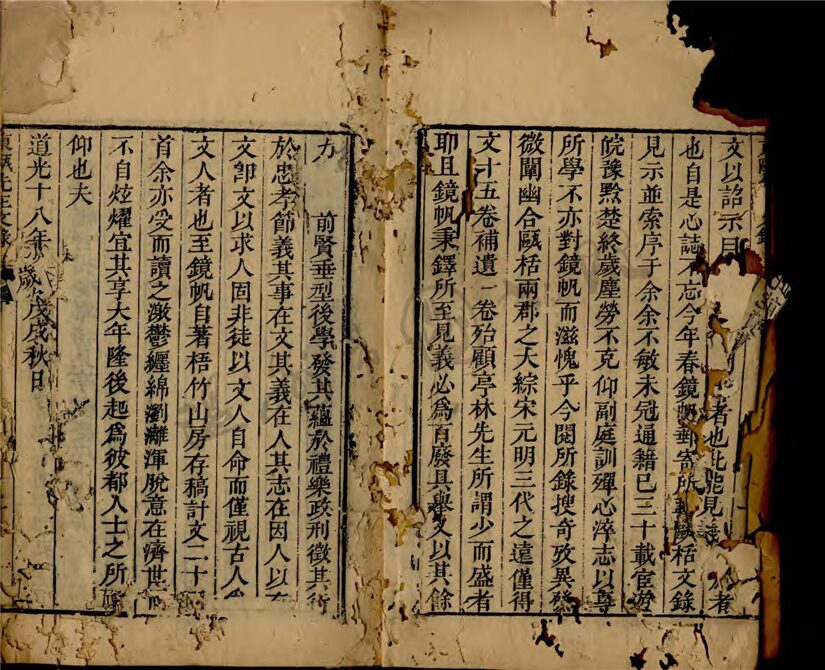 文以詔示
者也此能見 者
也自是心誌不忘今年春鏡帆郵寄所 甌栝文錄
見示並索序于余余不敏未冠通籍已三十載宦遊
皖豫黔楚終歲塵勞不克仰副庭訓殫心淬志以尊
所學不亦對鏡帆而滋愧乎今閱所錄搜奇攷異發
微闡幽合甌栝兩郡之大綜宋元明三代之遠僅得
文十五卷補遺一卷殆顧亭林先生所謂少而盛者
耶且鏡帆秉鐸所至見義必為百廢具舉又以其餘
力 前賢垂型後學發其蘊於禮樂政刑徵其
於忠孝節義其事在文其義在人其志在因人以
文卽文以求人固非徒以文人自命而僅視古人
文人者也至鏡帆自著梧竹山房存稿計文二十
首余亦受而讀之激鬱纏綿瀏灕渾脫意在濟世
不自炫燿宜其享大年隆後起為彼都人士之所
仰也夫
道光十八年 歲 戊戌秋日
先生文錄